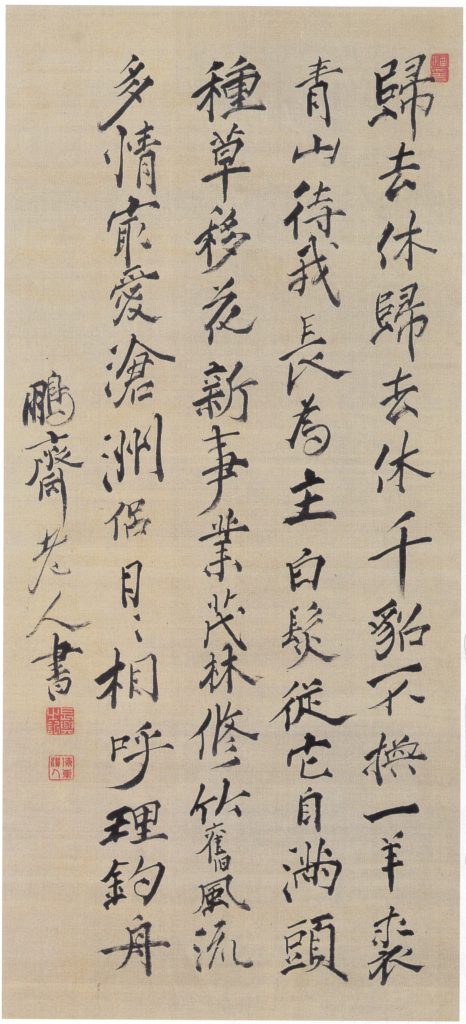 歸去休歸去休千貂不換一羊裘
青山待我長為主白髮從它自滿頭
種草移花新事業茂林修竹舊風流
多情㝡愛滄洲侶日〻相呼理釣舟
鵬齋老人書